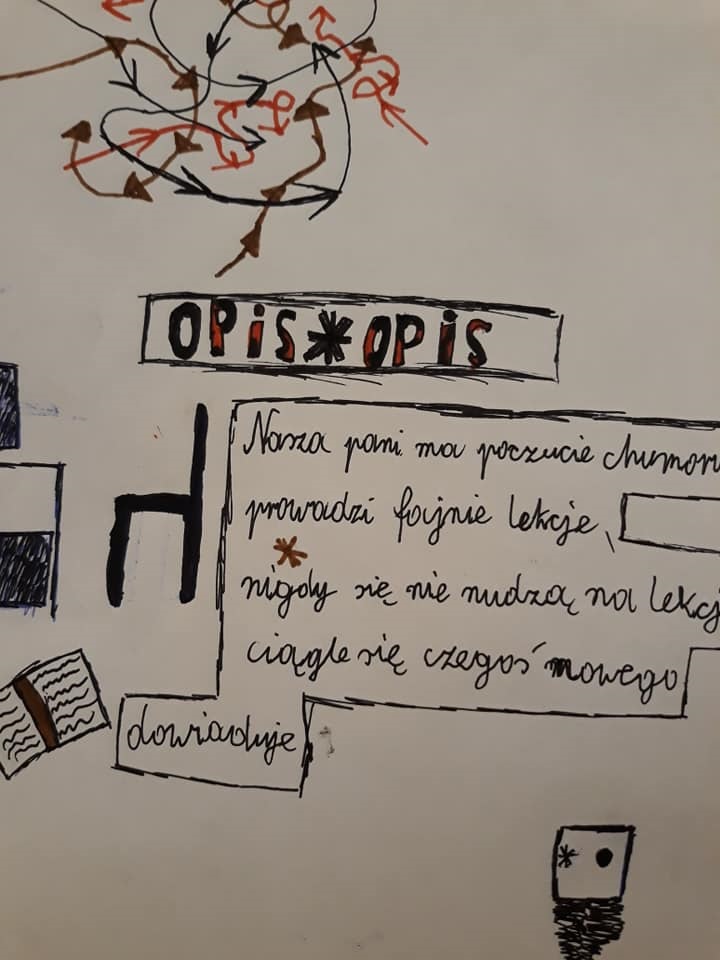 OPiS * OPiS
Nasza pani ma poczucie chumoru
prowadzi fajnie lekcje,
*
nigdy się nie nudzą na lekcj
ciągle się czegoś nowego
dowiaduje